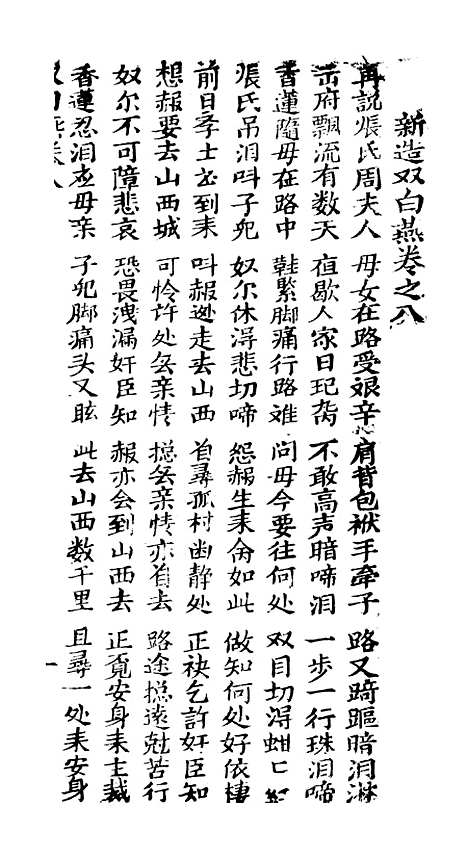 新造双白燕卷之八
再説張氏周夫人 母女在路受艰辛 肩背包袱手牽子 路又踦䠓暗洞淋
出府飄流有数天 夜歇人家日玘 不敢高声暗啼泪 一步一行珠泪啼
香蓮隨母在路中 鞋緊脚痛行路难 问母今要往何处 双目切淂蚶匕紅
張氏吊泪叫子児 奴尔休淂悲切啼 怨赧生来侖如此 做知何处好依棲
前日孝士尨到来 叫赧逊走去山西 着尋孤村幽静处 正袂乞許奸臣知
想赧要去山西城 可怜许处무亲情 搃무亲情亦着去 路途搃遠尅苦行
奴尔不可障悲哀 恐畏洩漏奸臣知 赧亦会到山西去 正覓安身来主裁
香蓮忍泪应母亲 子児脚痛头又眩 此去山西数千里 且尋一处来安身
一